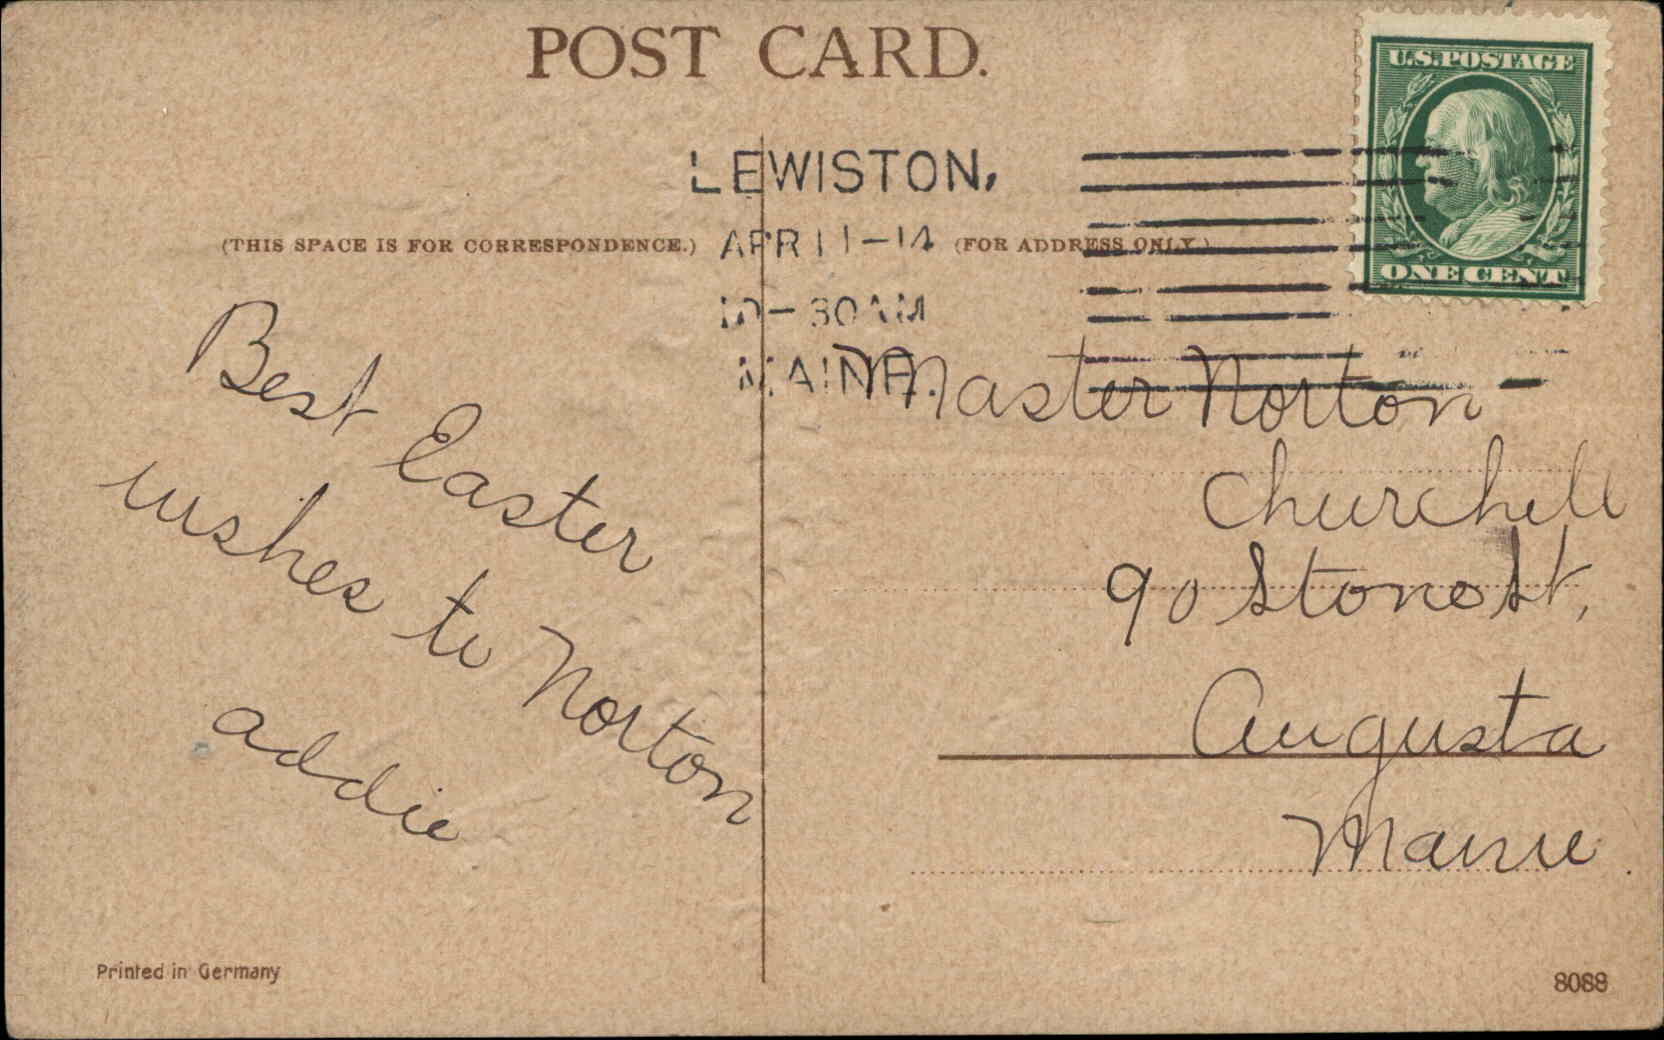 POST CARD.
U.S. POSTAGE
ONE CENT
LEWISTON,
APR 11-14
10-30AM
MAINE.
(THIS SPACE IS FOR CORRESPONDENCE.)
(FOR ADDRESS ONLY.)
Best Easter
wishes to Norton
addie
Master Norton
Churchill
90 Stone St,
Augusta
Maine
Printed in Germany
8088